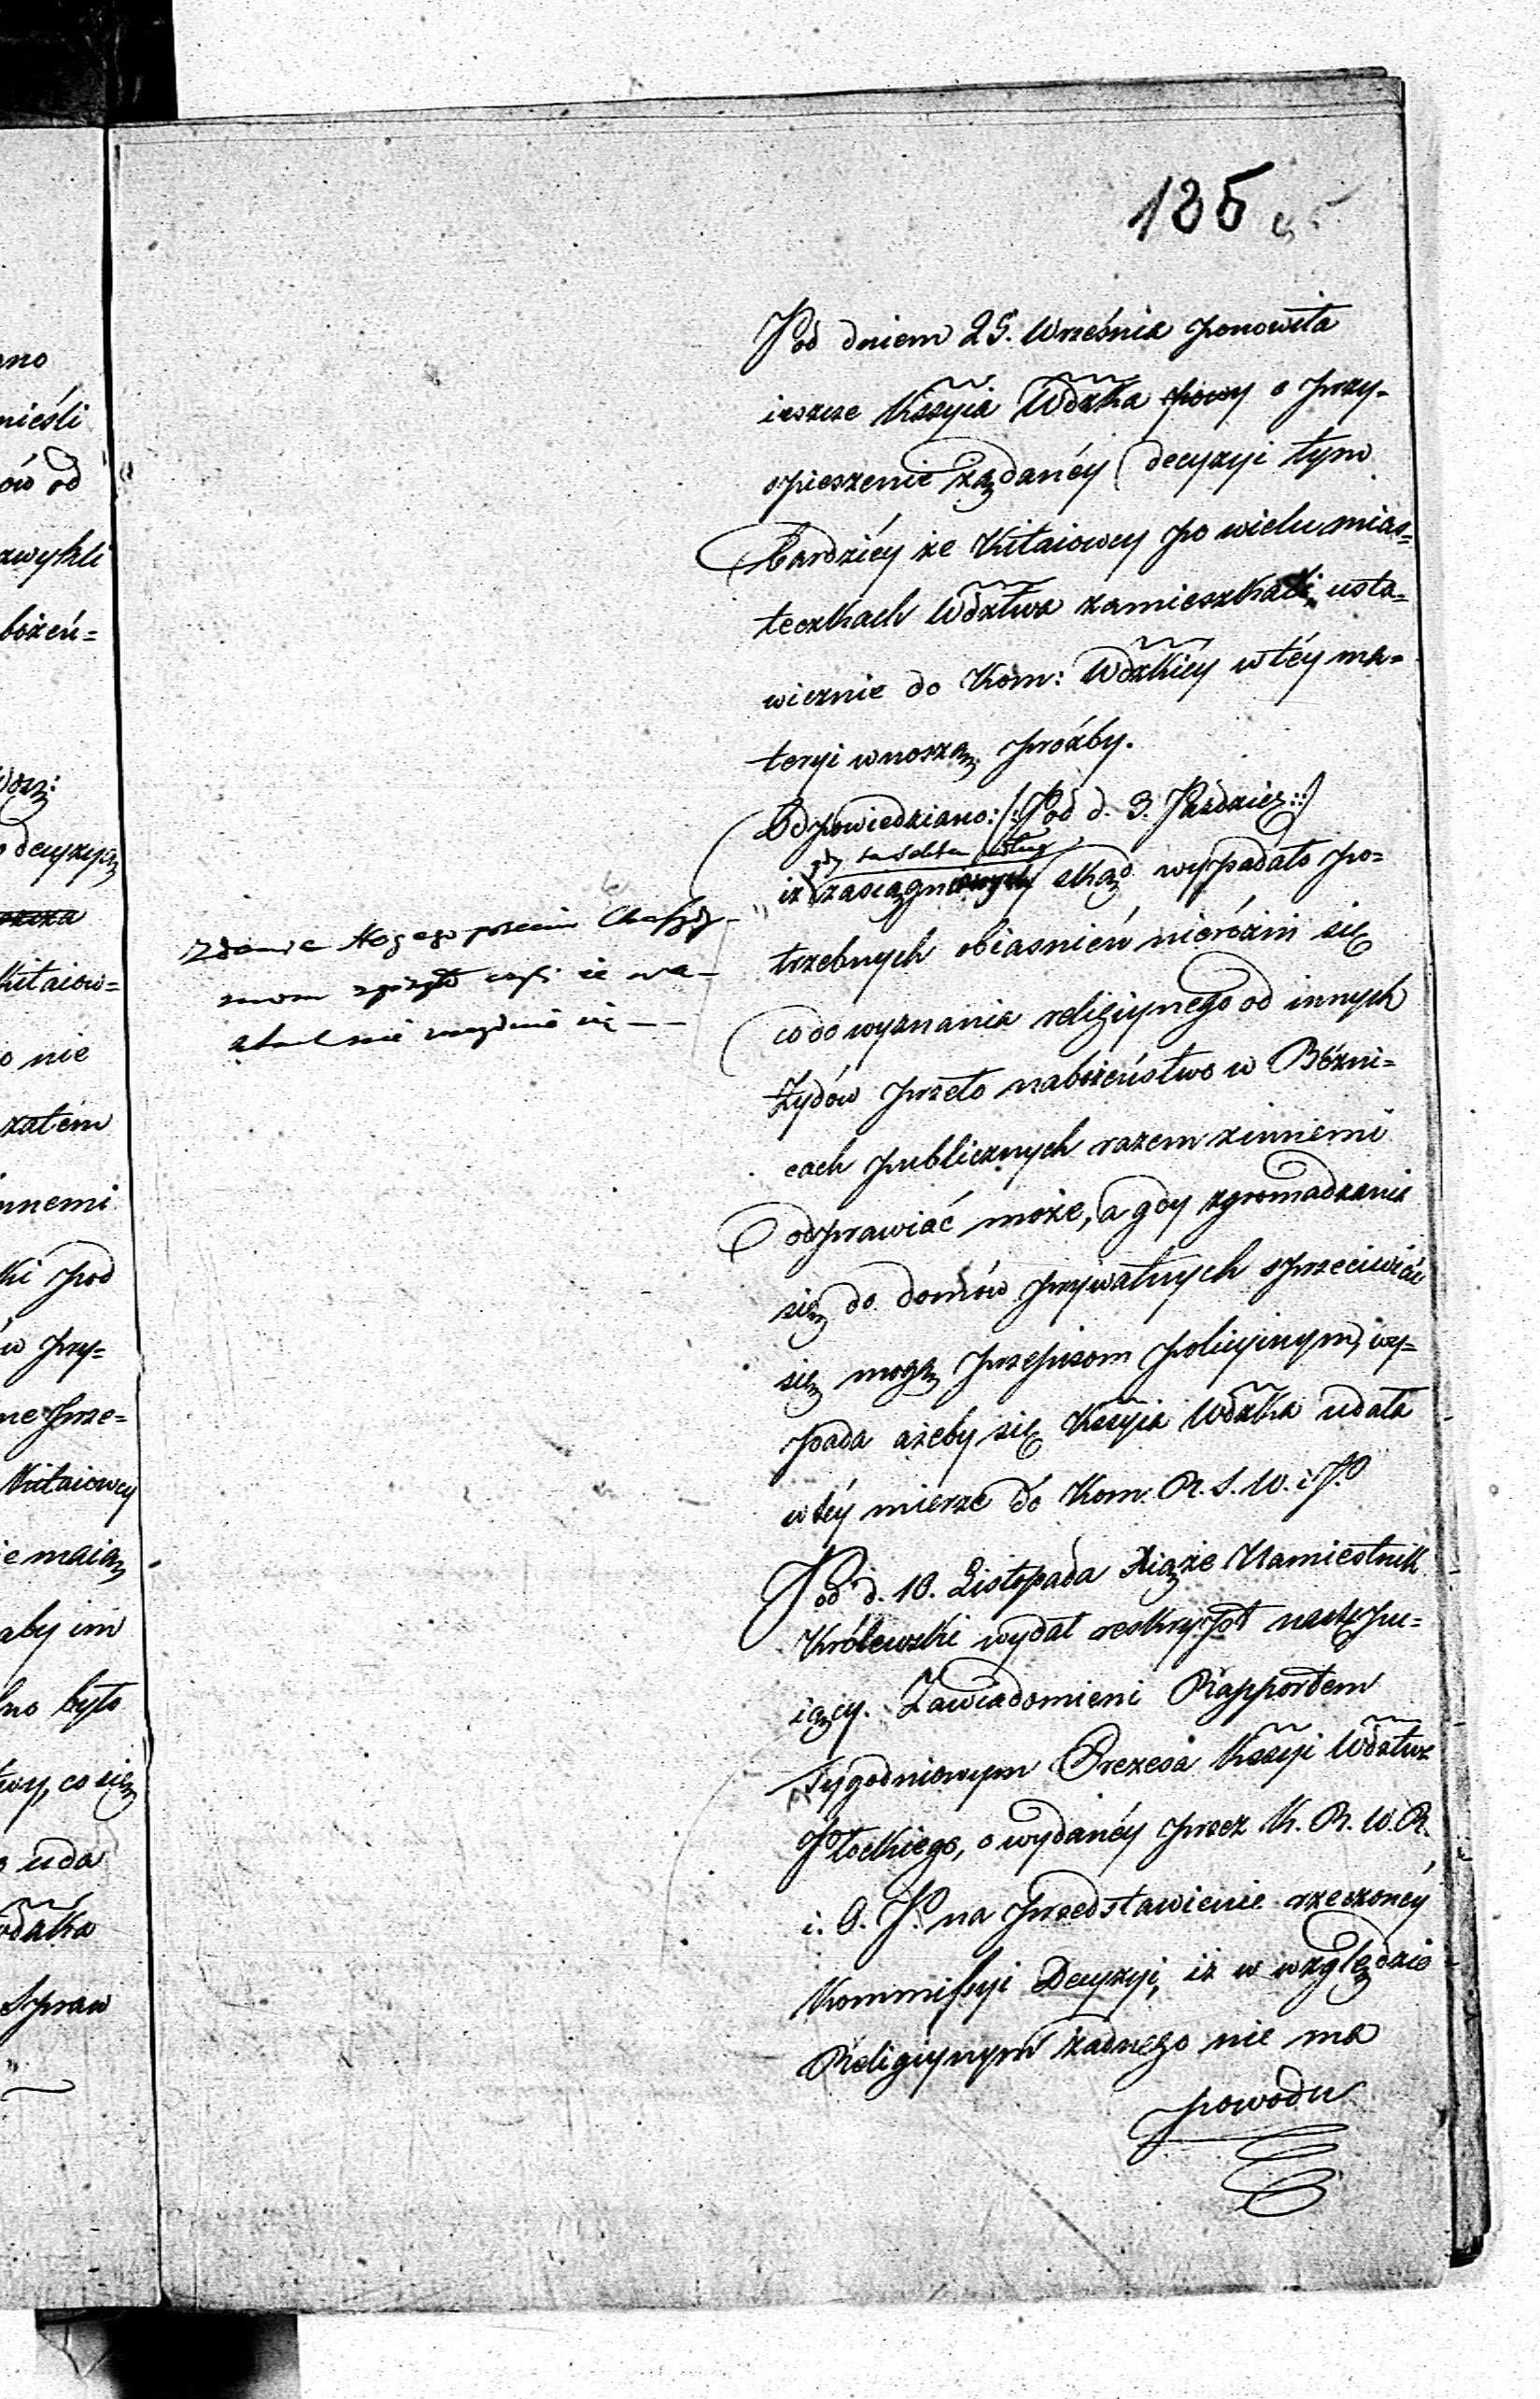 135
Pod dniem 25. Września ponowiła
ieszcze Kssyia Wdzka o przy-
spieszenie żądanéy decyzyi tym
bardziéy że Kitaiowcy po wielu mias=
teczkach Wdztwa zamieszkali usta=
wicznie do Kom: Wdzkiey w téy ma=
teryi wnoszą prożby.
Odpowiedziano: /: Pod d. 3. Paździer: :/
iż gdy ta sekta według
zasiągnionych skąd wypadało po=
trzebnych obiasnień nieróżni się
co do wyznania religiynego od innych
Żydów przeto nabożeństwo w Bóżni=
cach publicznych razem z innemi
odprawiać może, a gdy zgromadzania
się do domów prywatnych sprzeciwiać
się mogą przepisom policyinym, wy=
pada ażeby się Kssyia Wdzka udała
w téy mierze do Kom. R. S. W. i P.
Pod d. 10. Listopada Xiąże Namiestnik
Królewski wydał reskrypt nastepu=
iący. Zawiadomieni Rapportem
Tygodniowym Prezesa Kssyi Wdztwa
Płockiego, o wydanéy przez K. R. W. R.
i. O. P. na przedstawienie rzeczonéy
Kommissyi Decyzyi, iż w względzie
Religiynym żadnego nie ma
powodu
Zdanie
ano
mieśli
ów od
zwykli
bożeń=
decyzyą
Kitaiow=
o nie
zatém
innemi
ki pod
w pry=
ne prze=
Kitaiowcy
ie maią
aby im
lno było
co się
uda
Wdzka
Spraw